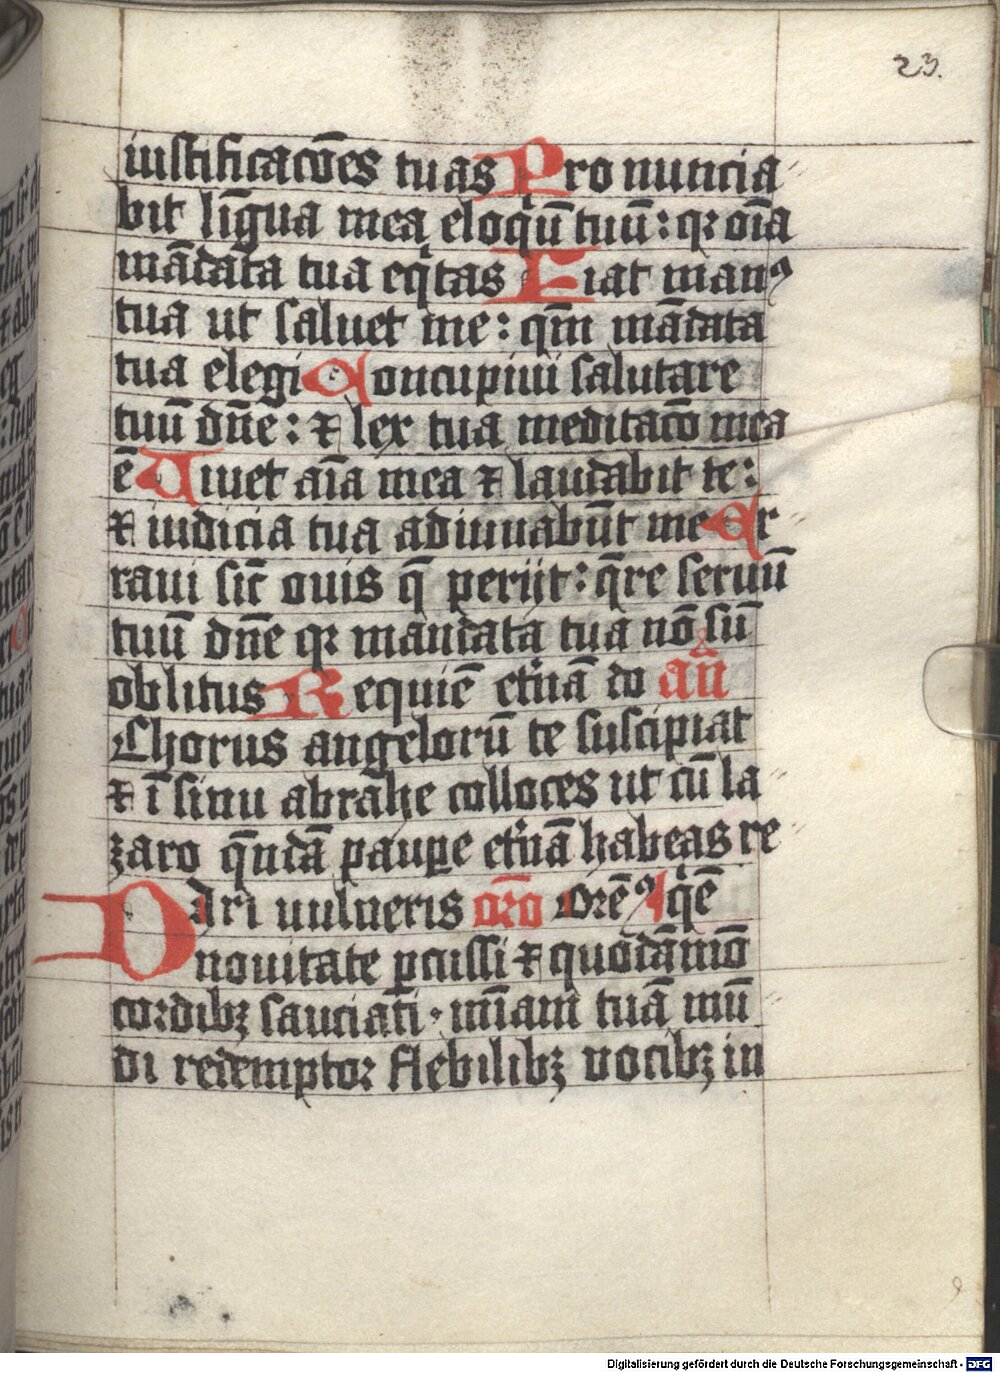 23.
iustificacōes tuas Pro nuncia
bit līgua mea eloquū tuū: qꝛ oīa
mādata tua eqͥtas Fiat manꝰ
tua ut saluet me: qm̄ mādata
tua elegi Concupiui salutare
tuū dn̄e: ⁊ lex tua meditacō mea
ē Viuet aīa mea ⁊ laudabit te:
⁊ iudicia tua adiuuabūt me Er
raui sic̄ ouis q̄ perijt: qͣre seruū
tuū dn̄e qꝛ mandata tua nō sū
oblitus Requiē et̓nā do an̄
Chorus angelorū te suscipiat
⁊ ī sinu abrahe colloces ut cū la
zaro qͦndā pauꝑe et̓nā habeas re
Dari uulneris oro qͥē
nouitate ꝑcussi ⁊ quodāmō
cordibꝫ sauciati · mīam tuā mū
di redemptor flebilibꝫ uocibꝫ in
Digitalisierung gefördert durch die Deutsche Forschungsgemeinschaft - DFG